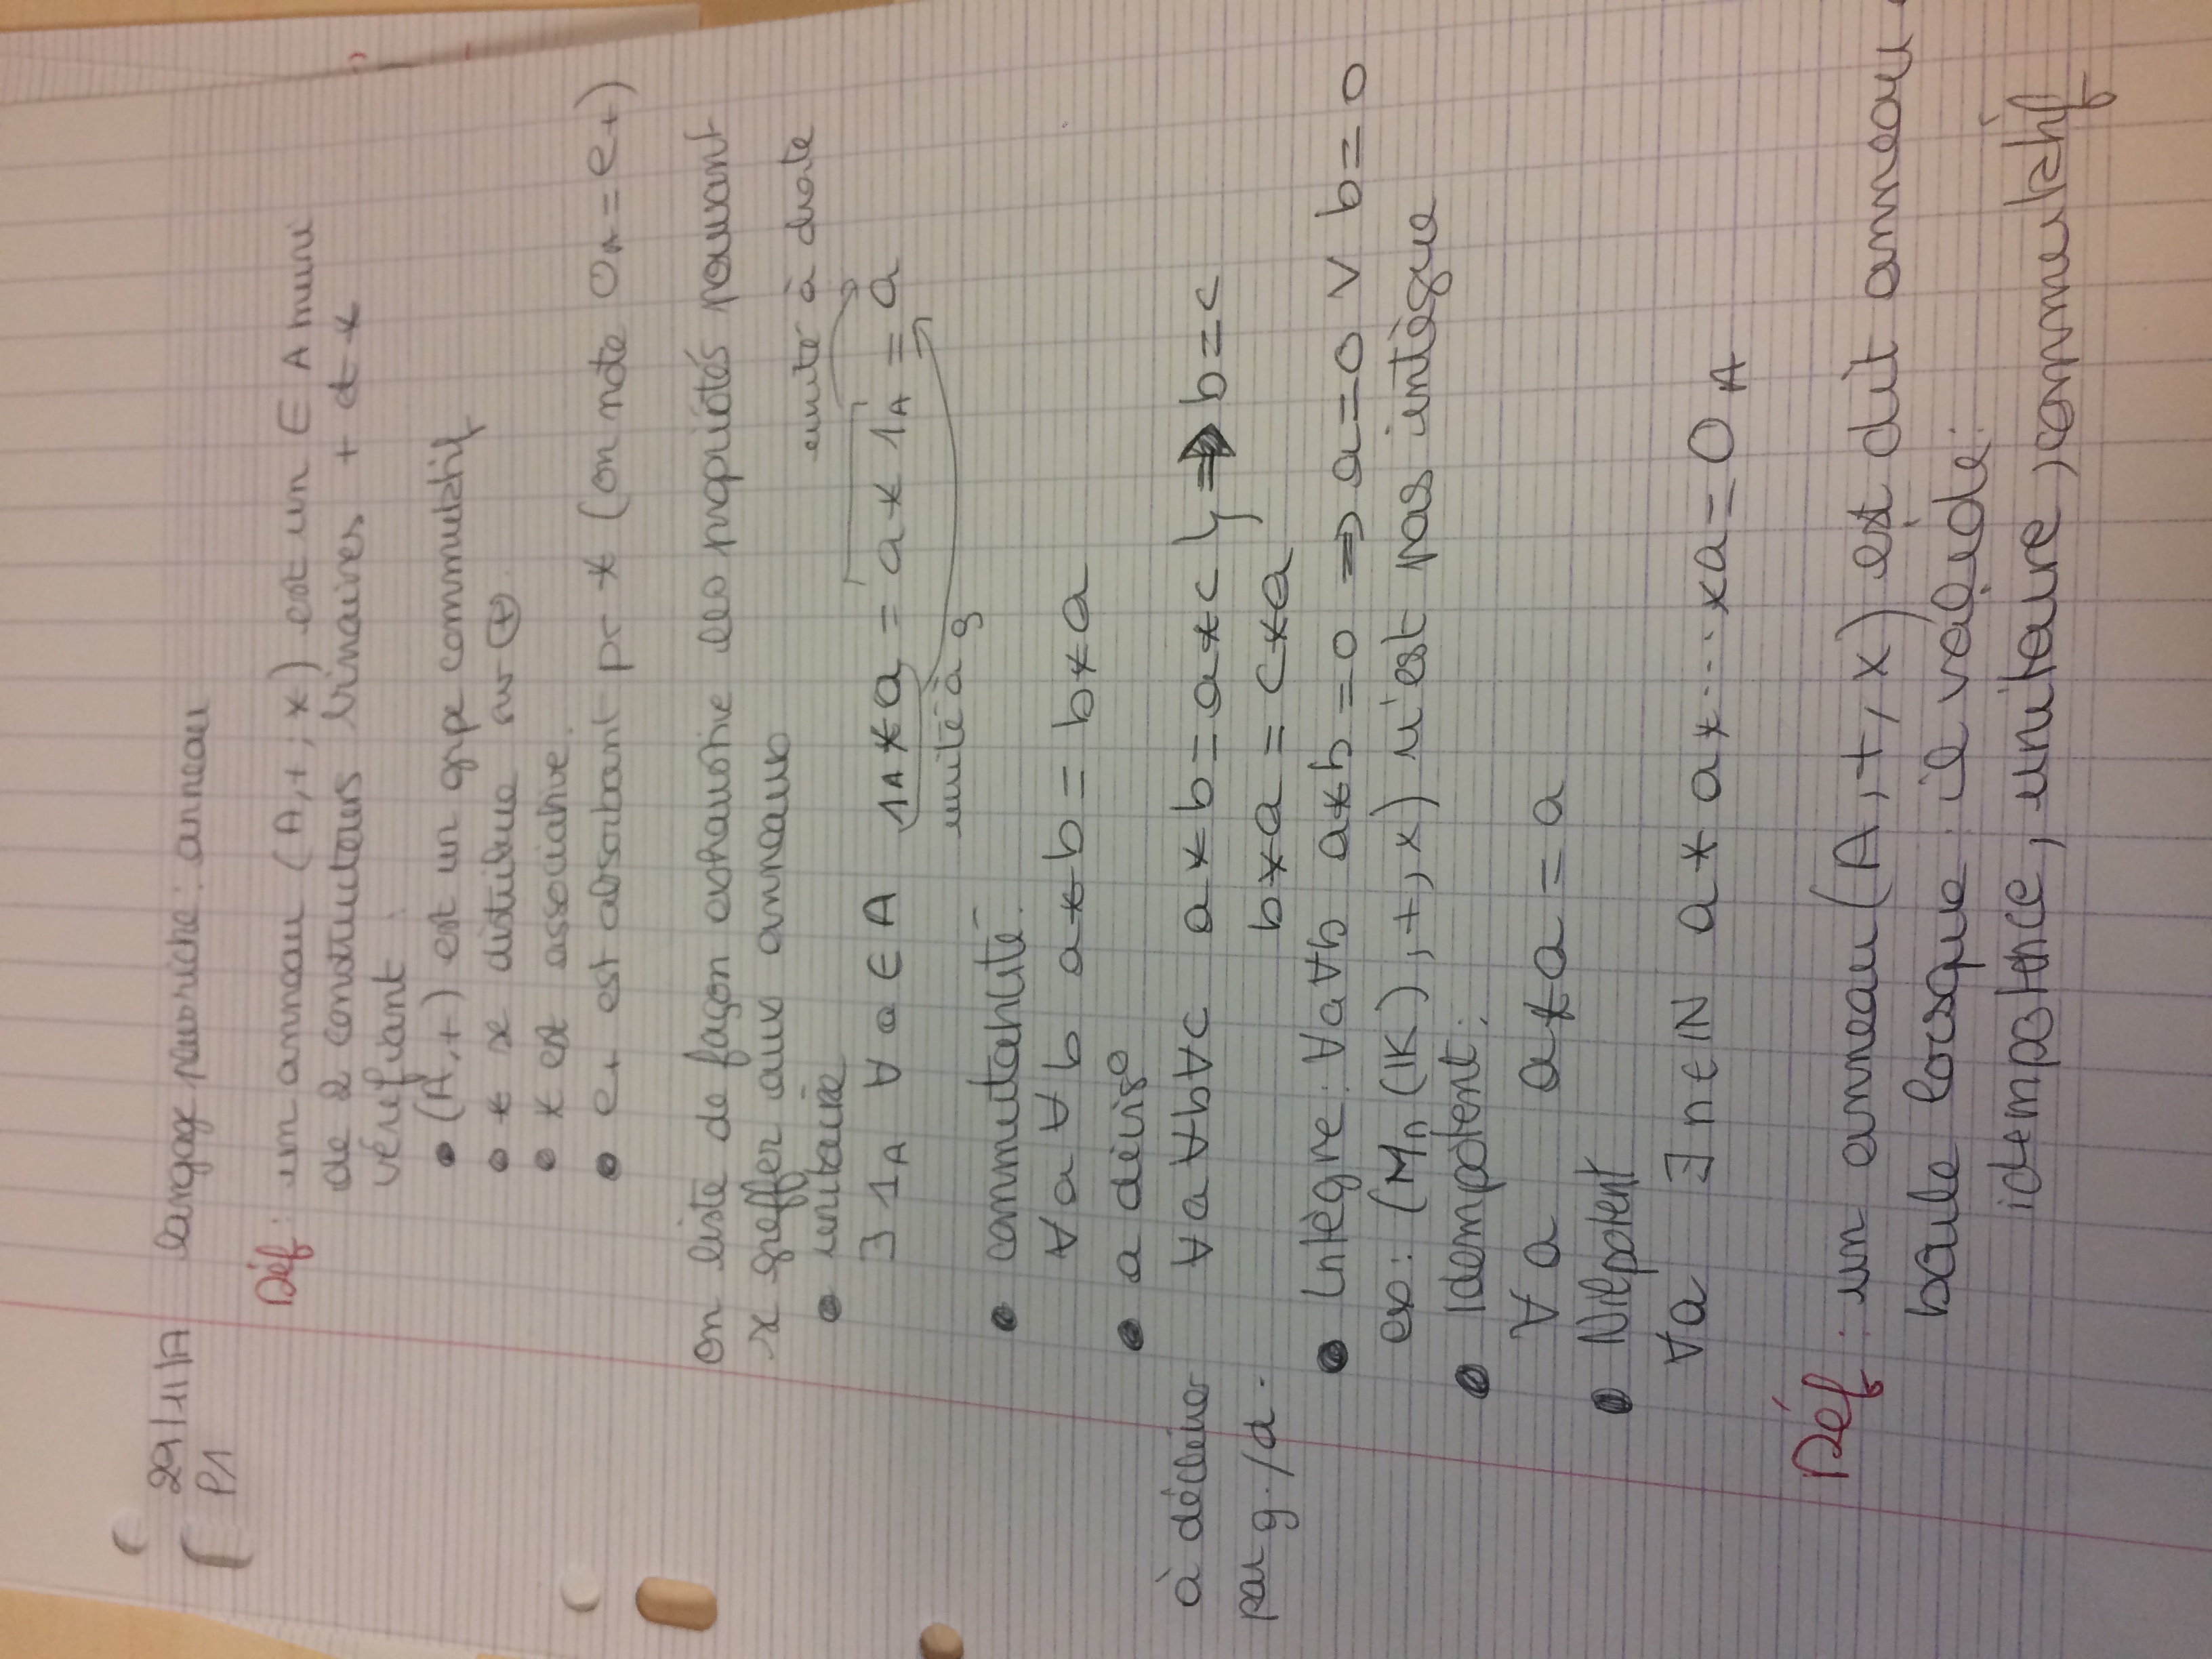 29/11/17 langage plus riche : anneau
P1
Déf : un anneau (A,+,*) est un E A muni
de 2 constructeurs binaires + et *
vérifiant :
• (A,+) est un grpe commutatif
• * se distribue sur ⊕
• * est associative.
• e₊ est absorbant pr * (on note 0_A = e₊)
on liste de façon exhaustive les propriétés pouvant
se greffer aux anneaux
• unitaire
unité à droite
∃ 1_A ∀ a ∈ A 1_A * a = a * 1_A = a
unité à g
• commutativité
∀a ∀b a*b = b*a
• a divis°
à décliner par g./d.
∀a∀b∀c a*b = a*c } ⇒ b=c
b*a = c*a
• Intègre : ∀a∀b a*b = 0 ⇒ a=0 ∨ b=0
ex : (Mn(IK),+,x) n'est pas intègre
• Idempotent :
∀a a*a = a
• Nilpotent
∀a ∃n∈IN a*a*...*a = 0_A
Déf : un anneau (A,+,x) est dit anneau
boule lorsque il valide :
idempotence, unitaire, commutatif